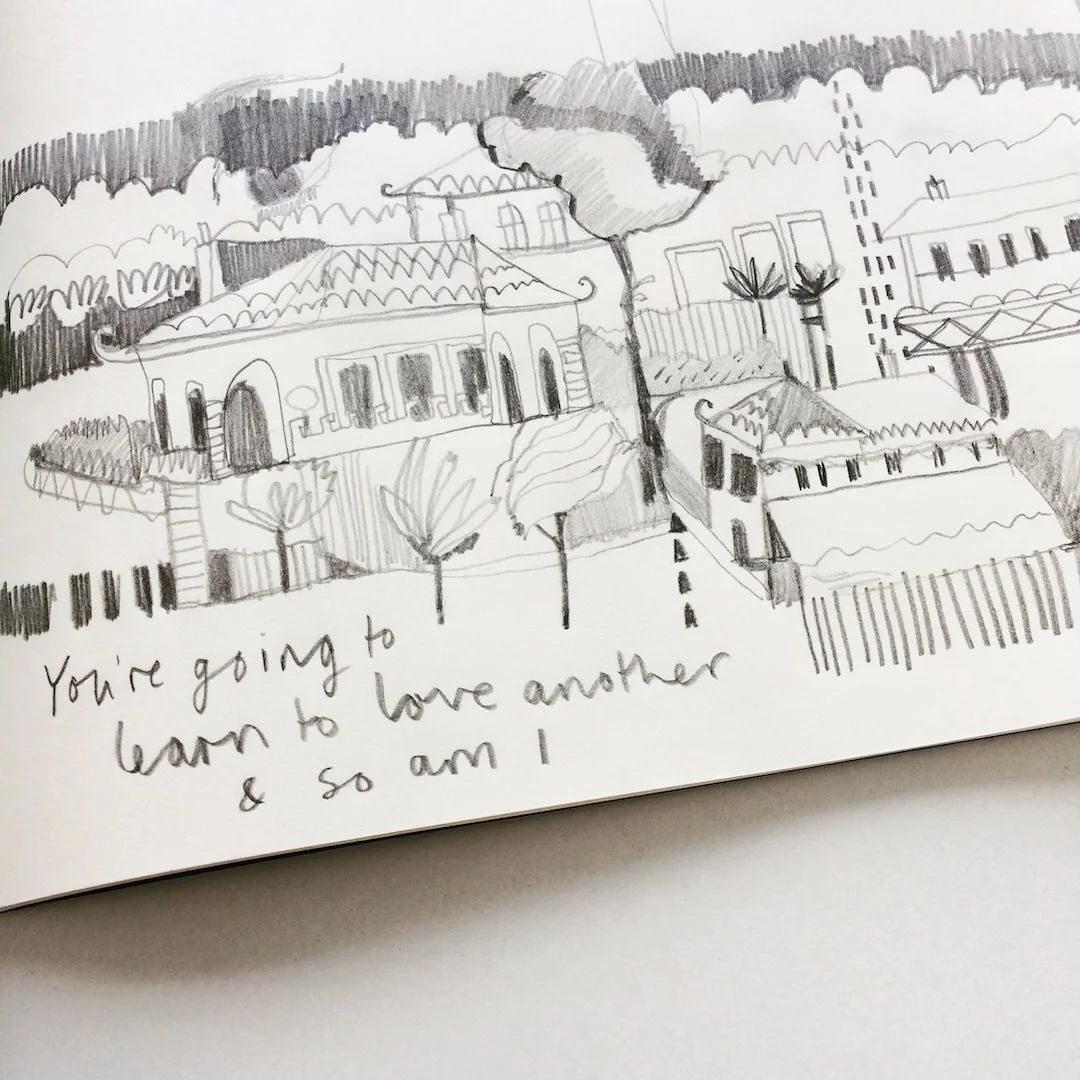 You're going to
learn to love another
& so am I